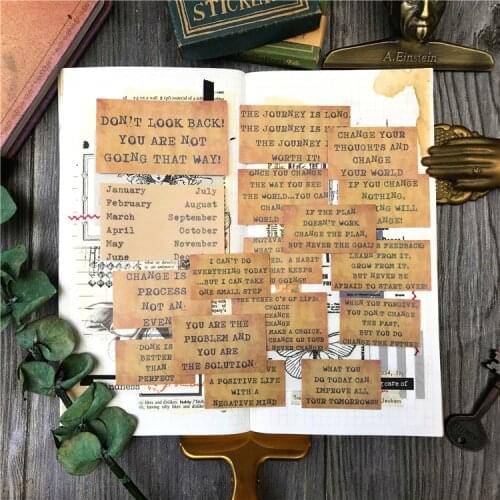 STICKER
A.Einstein
DON'T LOOK BACK!
YOU ARE NOT
GOING THAT WAY!
January July
February August
March September
April October
May November
June Dec
THE JOURNEY IS LONG.
THE JOURNEY IS
THE JOURNEY IS
WORTH IT!
CHANGE YOUR
THOUGHTS AND
CHANGE
YOUR WORLD
IF YOU CHANGE
NOTHING,
ONCE YOU CHANGE
THE WAY YOU SEE
THE WORLD...YOU CAN
WORLD
IF THE PLAN
DOESN'T WORK
CHANGE THE PLAN,
BUT NEVER THE GOAL
FEEDBACK;
LEARN FROM IT.
GROW FROM IT.
BUT NEVER BE
AFRAID TO START OVER
A HABIT
KEEPS
I CAN'T DO
EVERYTHING TODAY
...BUT I CAN TAKE
ONE SMALL STEP
CHANGE IS
PROCESS
NOT AN
EVEN
THREE C'S OF LIFE:
CHOICE
CHANCE
CHANGE
MAKE A CHOICE,
CHANCE OR YOUR
NEVER CHANGE
WHEN YOU FORGIVE,
YOU DON'T CHANGE
THE PAST,
BUT YOU DO
CHANGE THE FUTURE
YOU ARE THE
PROBLEM AND
YOU ARE
THE SOLUTION
DONE IS
BETTER
THAN
PERFECT
A POSITIVE LIFE
WITH A
NEGATIVE MIND
WHAT YOU
DO TODAY CAN
IMPROVE ALL
YOUR TOMORROWS
care of